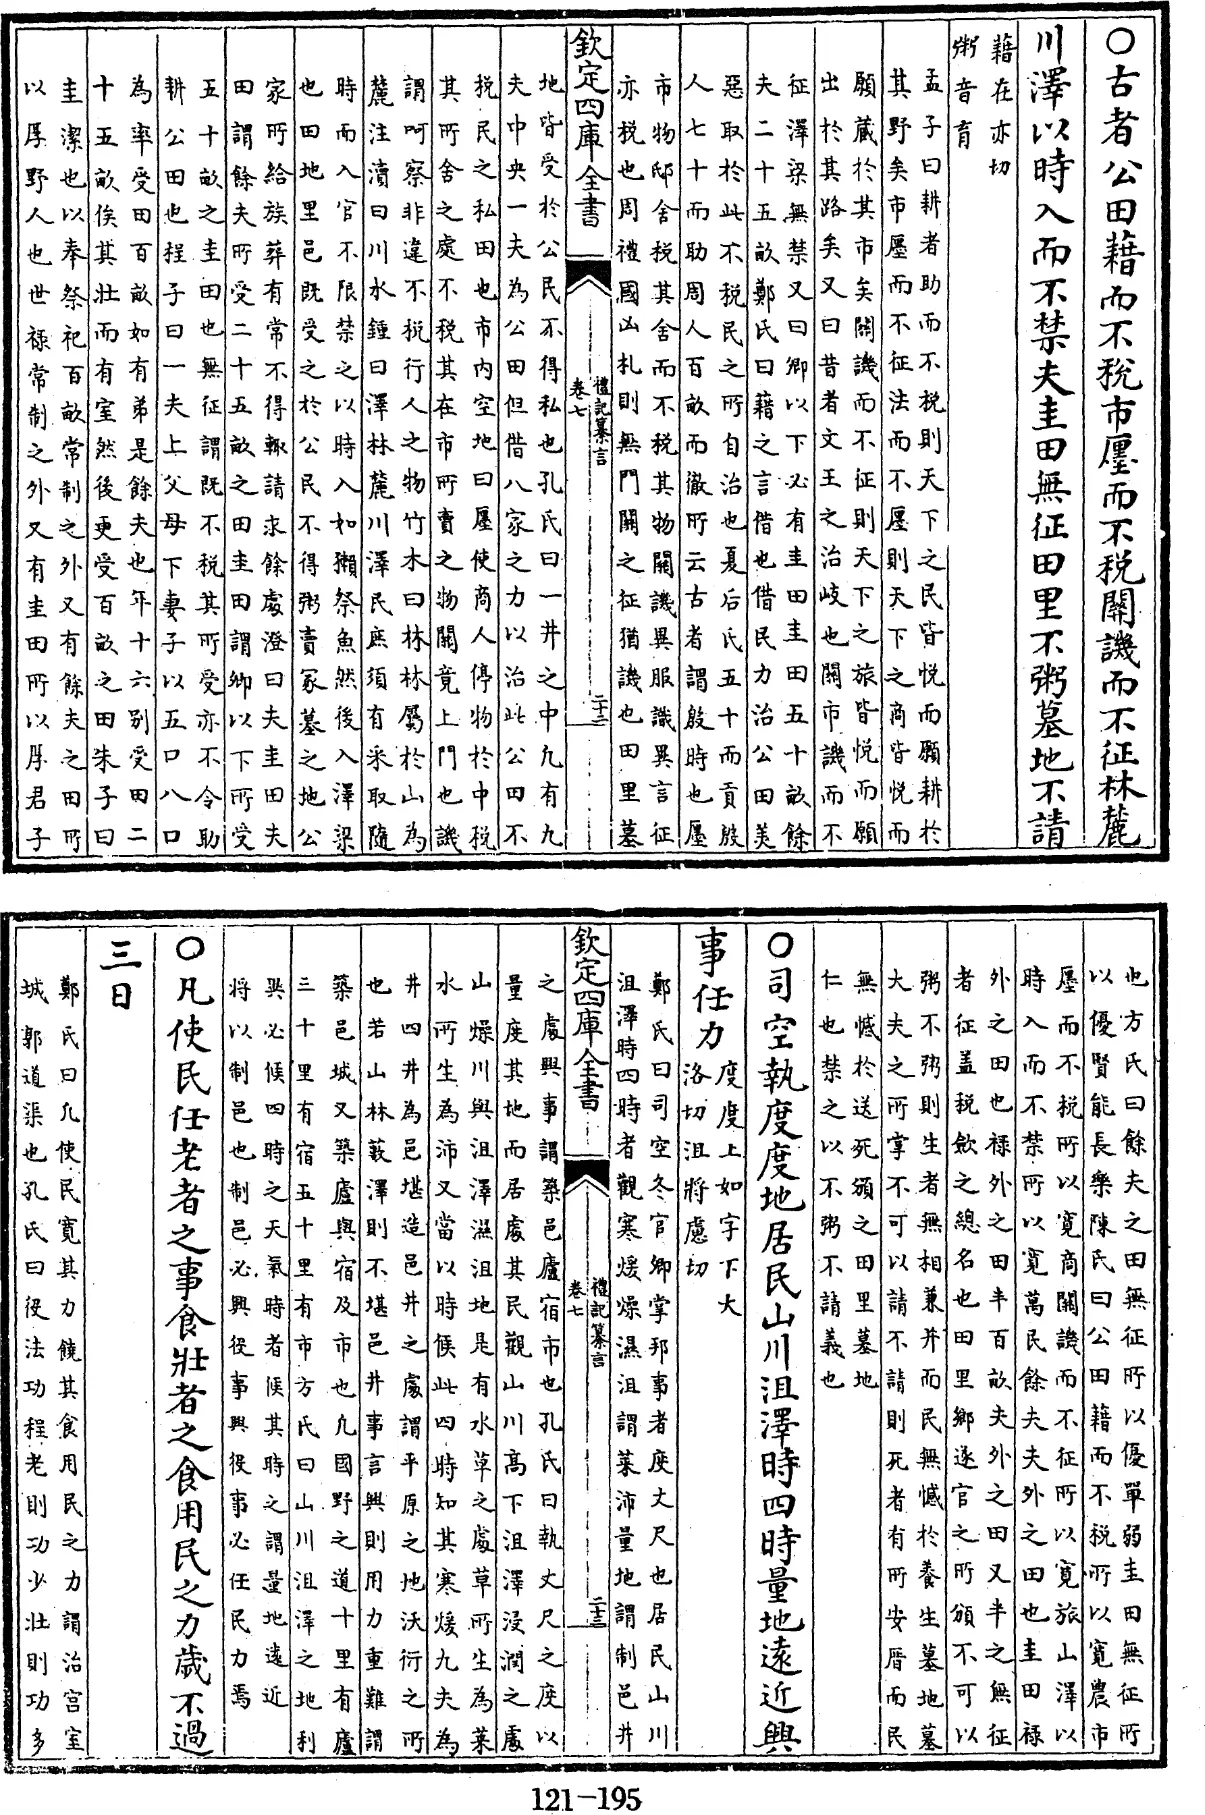 ○古者公田藉而不稅市廛而不稅關譏而不征林麓
川澤以時入而不禁夫圭田無征田里不粥墓地不請
藉在亦切
粥音育
孟子曰耕者助而不稅則天下之民皆悅而願耕於
其野矣市廛而不征法而不廛則天下之商皆悅而
願藏於其市矣關譏而不征則天下之旅皆悅而願
出於其路矣又曰昔者文王之治岐也關市譏而不
征澤梁無禁又曰卿以下必有圭田圭田五十畝餘
夫二十五畝鄭氏曰藉之言借也借民力治公田美
惡取於此不稅民之所自治也夏后氏五十而貢殷
人七十而助周人百畝而徹所云古者謂殷時也廛
市物邸舍稅其舍而不稅其物關譏異服識異言征
亦稅也周禮國凶札則無門關之征猶譏也田里墓
欽定四庫全書
禮記纂言
卷七
二十二
地皆受於公民不得私也孔氏曰一井之中凡有九
夫中央一夫為公田但借八家之力以治此公田不
稅民之私田也市內空地曰廛使商人停物於中稅
其所舍之處不稅其在市所賣之物關竟上門也譏
謂呵察非違不稅行人之物竹木曰林林屬於山為
麓注瀆曰川水鍾曰澤林麓川澤民庶須有采取隨
時而入官不限禁之以時入如獺祭魚然後入澤梁
也田地里邑既受之於公民不得粥賣冢墓之地公
家所給族葬有常不得輒請求餘處澄曰夫圭田夫
田謂餘夫所受二十五畝之田圭田謂卿以下所受
五十畝之圭田也無征謂既不稅其所受亦不令助
耕公田也程子曰一夫上父母下妻子以五口八口
為率受田百畝如有弟是餘夫也年十六别受田二
十五畝俟其壯而有室然後更受百畝之田朱子曰
圭潔也以奉祭祀百畝常制之外又有餘夫之田所
以厚野人也世祿常制之外又有圭田所以厚君子
也方氏曰餘夫之田無征所以優單弱圭田無征所
以優賢能長樂陳氏曰公田藉而不稅所以寬農市
廛而不稅所以寬商關譏而不征所以寬旅山澤以
時入而不禁所以寬萬民餘夫夫外之田也圭田祿
外之田也祿外之田半百畝夫外之田又半之無征
者征蓋稅斂之總名也田里鄉遂官之所頒不可以
粥不粥則生者無相兼并而民無憾於養生墓地墓
大夫之所掌不可以請不請則死者有所安厝而民
無憾於送死頒之田里墓地
仁也禁之以不粥不請義也
○司空執度度地居民山川沮澤時四時量地遠近興
事任力
度度上如字下大
洛切沮將慮切
鄭氏曰司空冬官卿掌邦事者度丈尺也居民山川
沮澤時四時者觀寒煖燥濕沮謂萊沛量地謂制邑井
欽定四庫全書
禮記纂言
卷七
二十三
之處興事謂築邑廬宿市也孔氏曰執丈尺之度以
量度其地而居處其民觀山川高下沮澤浸潤之處
山燥川與沮澤濕沮地是有水草之處草所生為萊
水所生為沛又當以時候此四時知其寒煖九夫為
井四井為邑堪造邑井之處謂平原之地沃衍之所
也若山林藪澤則不堪邑井事言興則用力重難謂
築邑城又築廬與宿及市也凡國野之道十里有廬
三十里有宿五十里有市方氏曰山川沮澤之地利
異必候四時之天氣時者候其時之謂量地遠近
將以制邑也制邑必興役事興役事必任民力焉
○凡使民任老者之事食壯者之食用民之力歲不過
三日
鄭氏曰凡使民寬其力饒其食用民之力謂治宫室
城郭道渠也孔氏曰役法功程老則功少壯則功多
121-195